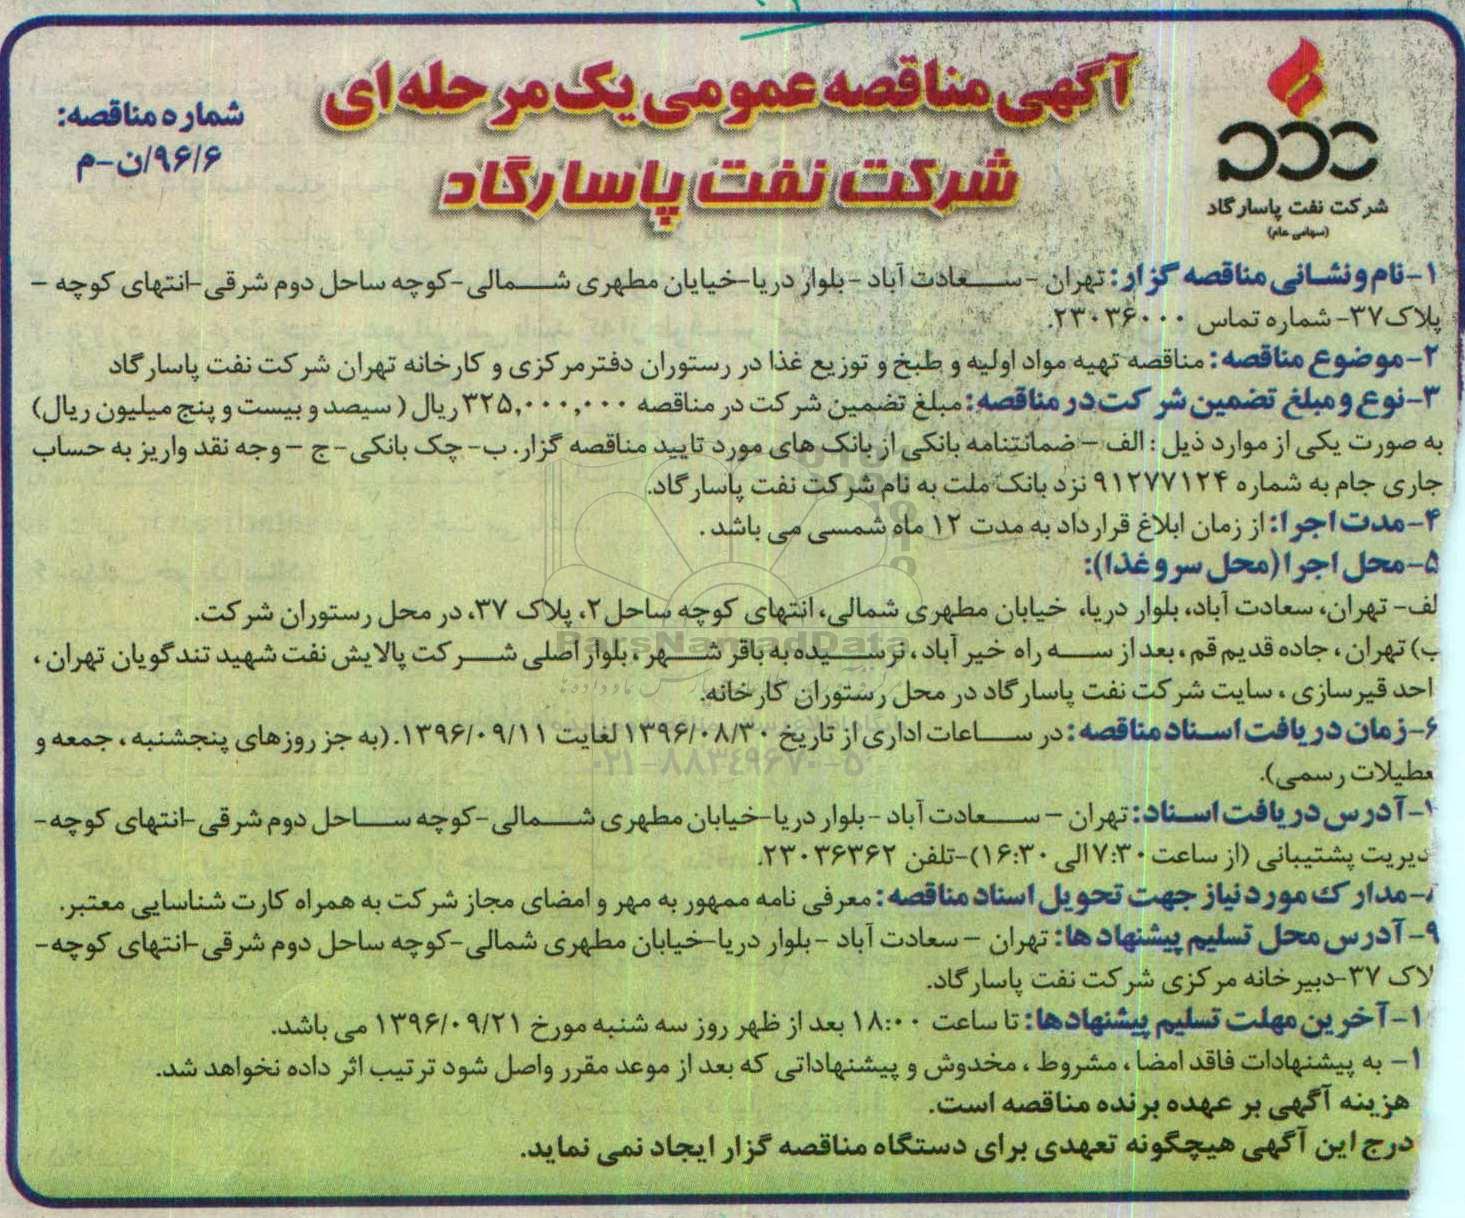 آگهی مناقصه عمومی یک مرحله ای
شرکت نفت پاسارگاد
شماره مناقصه:
۹۶/۶/ن-م
شرکت نفت پاسارگاد
(سهامی عام)
۱-نام و نشانی مناقصه گزار: تهران -سعادت آباد -بلوار دریا-خیایان مطهری شمالی-کوچه ساحل دوم شرقی-انتهای کوچه -
پلاک۳۷- شماره تماس ۲۳۰۳۶۰۰۰.
۲-موضوع مناقصه: مناقصه تهیه مواد اولیه و طبخ و توزیع غذا در رستوران دفترمرکزی و کارخانه تهران شرکت نفت پاسارگاد
۳-نوع و مبلغ تضمین شرکت در مناقصه: مبلغ تضمین شرکت در مناقصه ۳۲۵,۰۰۰,۰۰۰ ریال ( سیصد و بیست و پنج میلیون ریال)
به صورت یکی از موارد ذیل : الف - ضمانتنامه بانکی از بانک های مورد تایید مناقصه گزار. ب- چک بانکی- ج - وجه نقد واریز به حساب
جاری جام به شماره ۹۱۲۷۷۱۲۴ نزد بانک ملت به نام شرکت نفت پاسارگاد.
۴-مدت اجرا: از زمان ابلاغ قرارداد به مدت ۱۲ ماه شمسی می باشد .
۵-محل اجرا (محل سرو غذا):
لف- تهران، سعادت آباد، بلوار دریا، خیابان مطهری شمالی، انتهای کوچه ساحل۲، پلاک ۳۷، در محل رستوران شرکت.
ب) تهران ، جاده قدیم قم ، بعد از سه راه خیر آباد ، نرسیده به باقر شهر ، بلوار اصلی شرکت پالایش نفت شهید تندگویان تهران ،
احد قیرسازی ، سایت شرکت نفت پاسارگاد در محل رستوران کارخانه.
۶-زمان دریافت اسناد مناقصه: در ساعات اداری از تاریخ ۱۳۹۶/۰۸/۳۰ لغایت ۱۳۹۶/۰۹/۱۱. (به جز روزهای پنجشنبه ، جمعه و
عطیلات رسمی).
-آدرس دریافت اسناد: تهران - سعادت آباد -بلوار دریا-خیابان مطهری شمالی-کوچه ساحل دوم شرقی-انتهای کوچه-
دیریت پشتیبانی (از ساعت ۷:۳۰ الی ۱۶:۳۰)-تلفن ۲۳۰۳۶۳۶۲.
-مدارک مورد نیاز جهت تحویل اسناد مناقصه: معرفی نامه ممهور به مهر و امضای مجاز شرکت به همراه کارت شناسایی معتبر.
۹-آدرس محل تسلیم پیشنهادها: تهران - سعادت آباد -بلوار دریا-خیابان مطهری شمالی-کوچه ساحل دوم شرقی-انتهای کوچه-
لاک ۳۷-دبیرخانه مرکزی شرکت نفت پاسارگاد.
۱-آخرین مهلت تسلیم پیشنهادها: تا ساعت ۱۸:۰۰ بعد از ظهر روز سه شنبه مورخ ۱۳۹۶/۰۹/۲۱ می باشد.
۱- به پیشنهادات فاقد امضا ، مشروط ، مخدوش و پیشنهاداتی که بعد از موعد مقرر واصل شود ترتیب اثر داده نخواهد شد.
هزینه آگهی بر عهده برنده مناقصه است.
درج این آگهی هیچگونه تعهدی برای دستگاه مناقصه گزار ایجاد نمی نماید.
ParsNamadData
۰۲۱-۸۸۳۴۹۶۷۰-۵